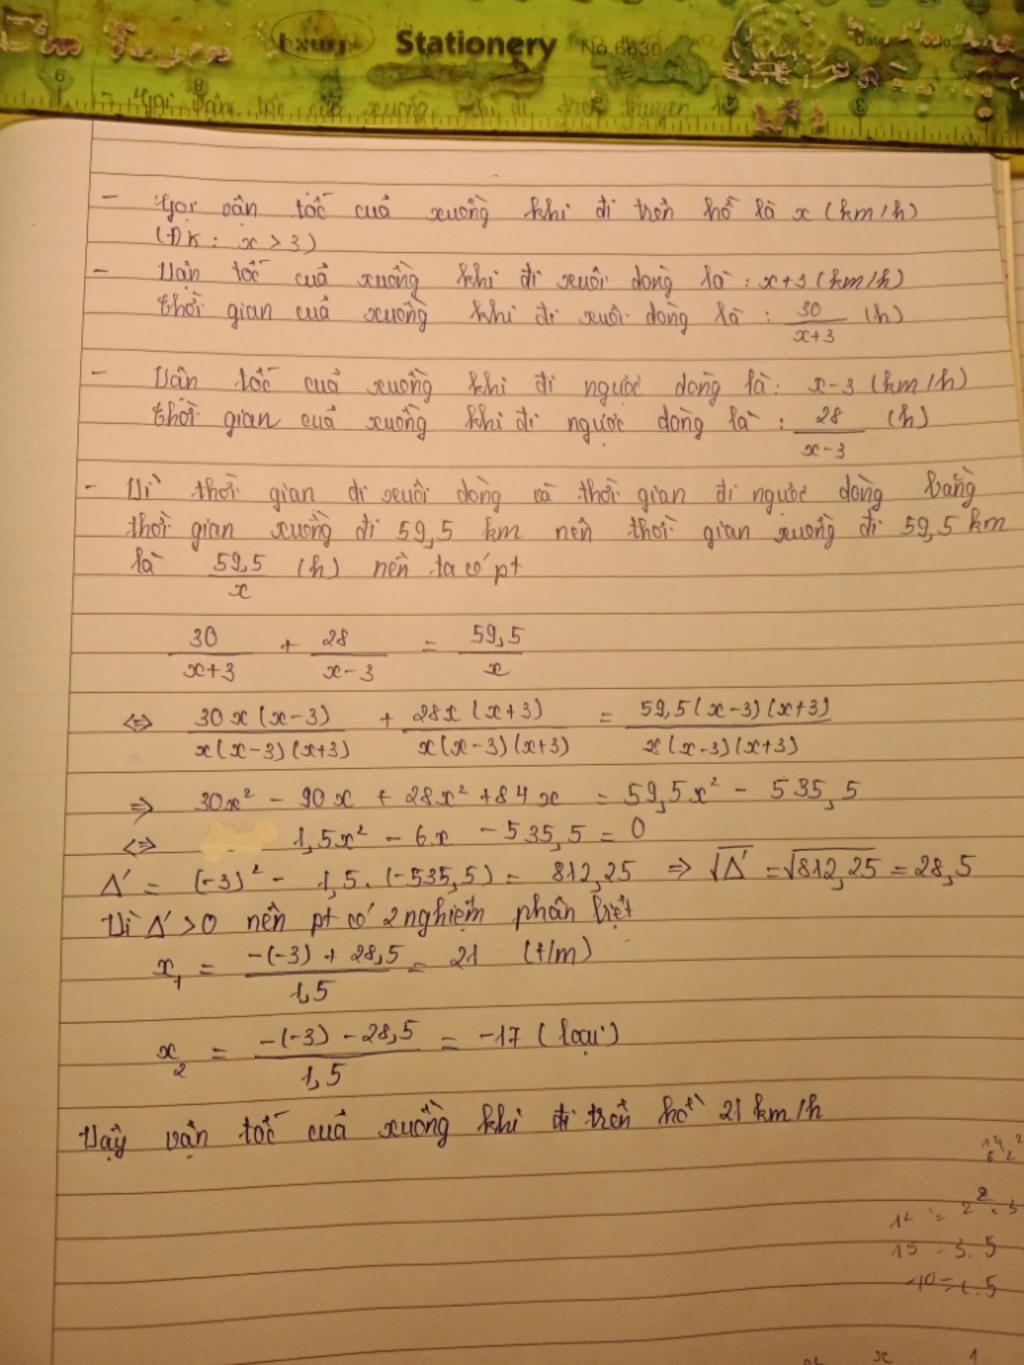 Stationery No.6630
- Gọi vận tốc của xuồng khi đi trên hồ là x (km/h)
(ĐK: x > 3)
- Vận tốc của xuồng khi đi xuôi dòng là: x+3 (km/h)
thời gian của xuồng khi đi xuôi dòng là: 30/(x+3) (h)
- Vận tốc của xuồng khi đi ngược dòng là: x-3 (km/h)
thời gian của xuồng khi đi ngược dòng là: 28/(x-3) (h)
- Vì thời gian đi xuôi dòng và thời gian đi ngược dòng bằng
thời gian xuồng đi 59,5 km nên thời gian xuồng đi 59,5 km
là 59,5/x (h) nên ta có pt
30/(x+3) + 28/(x-3) = 59,5/x
⇔ 30x(x-3)/(x(x-3)(x+3)) + 28x(x+3)/(x(x-3)(x+3)) = 59,5(x-3)(x+3)/(x(x-3)(x+3))
⇒ 30x² - 90x + 28x² + 84x = 59,5x² - 535,5
⇔ 1,5x² - 6x - 535,5 = 0
Δ' = (-3)² - 1,5.(-535,5) = 812,25 ⇒ √Δ' = √812,25 = 28,5
Vì Δ' > 0 nên pt có 2 nghiệm phân biệt
x₁ = (-(-3) + 28,5)/1,5 = 21 (t/m)
x₂ = (-(-3) - 28,5)/1,5 = -17 (loại)
Vậy vận tốc của xuồng khi đi trên hồ 21 km/h
12 = 2² . 3
15 = 3.5